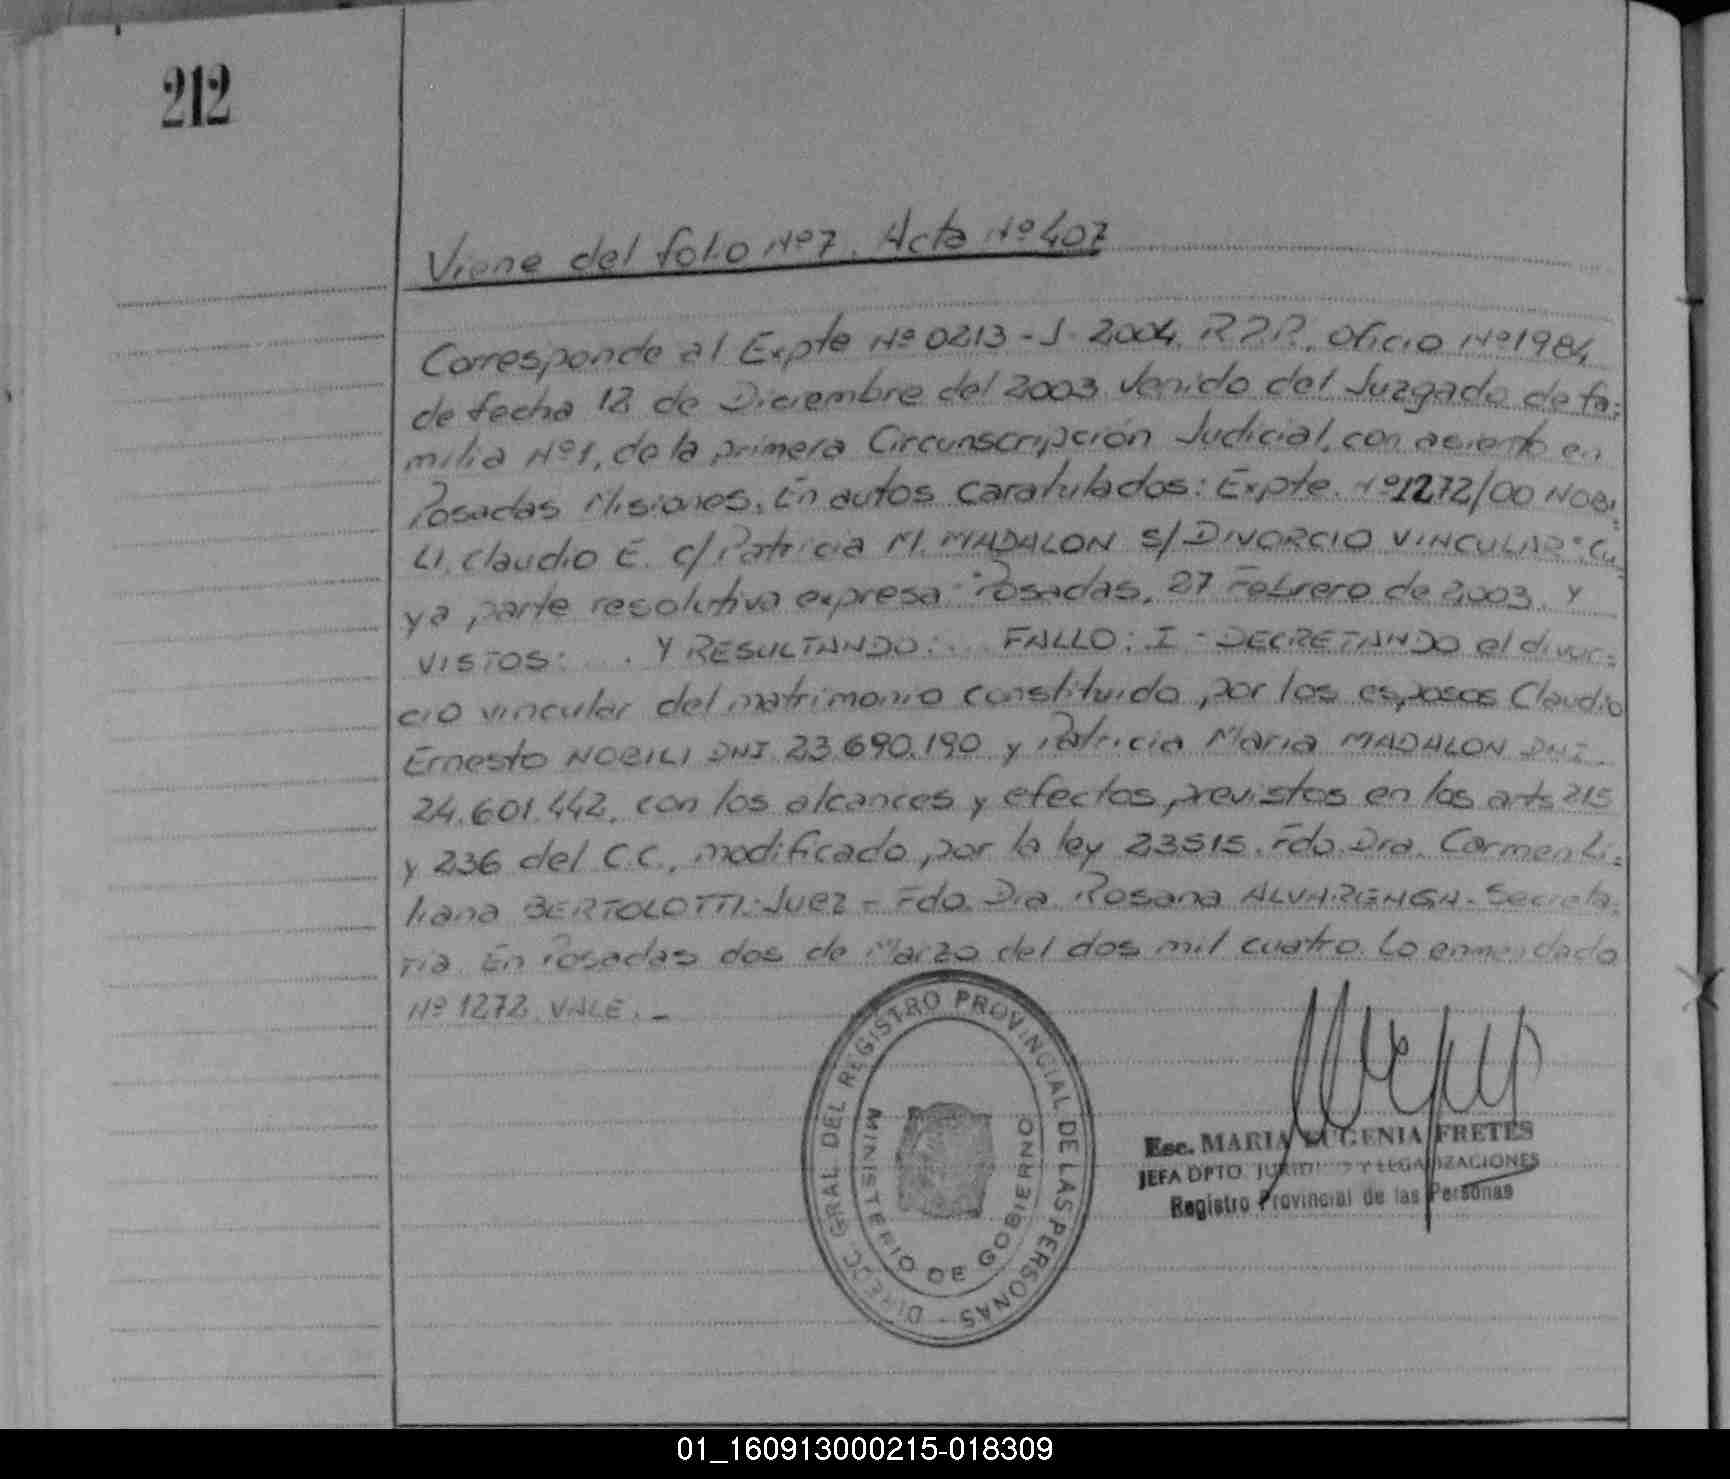 212
Viene del folio Nº7. Acta Nº 407
Corresponde al Expte Nº 0213-J-2004. R.P.P., Oficio Nº1984
de fecha 12 de Diciembre del 2003 Venido del Juzgado de fa=
milia Nº1, de la primera Circunscripción Judicial, con asiento en
Posadas Misiones. En autos caratulados: Expte. Nº1272/00 NOBI=
LI, Claudio E. c/ Patricia M. MADALON S/ DIVORCIO VINCULAR": Cu=
ya parte resolutiva expresa: "Posadas, 27 Febrero de 2,003. Y
VISTOS: ... Y RESULTANDO: ... FALLO: I - DECRETANDO el divor=
cio vincular del matrimonio constituido, por los esposos Claudio
Ernesto NOBILI DNI 23.690.190 y Patricia Maria MADALON DNI
24.601.442, con los alcances y efectos previstos en los arts 215
y 236 del C.C., modificado por la ley 23515. Fdo. Dra. Carmen Li=
liana BERTOLOTTI: Juez = Fdo. Dra Rosana ALVARENGA. Secreta=
ria. En Posadas dos de Marzo del dos mil cuatro. Lo enmendado
Nº 1272. VALE. -
DIRECC. GRAL DEL REGISTRO PROVINCIAL DE LAS PERSONAS -
MINISTERIO DE GOBIERNO
Esc. MARIA EUGENIA FRETES
JEFA DPTO. JURIDICO Y LEGALIZACIONES
Registro Provincial de las Personas
01_160913000215-018309